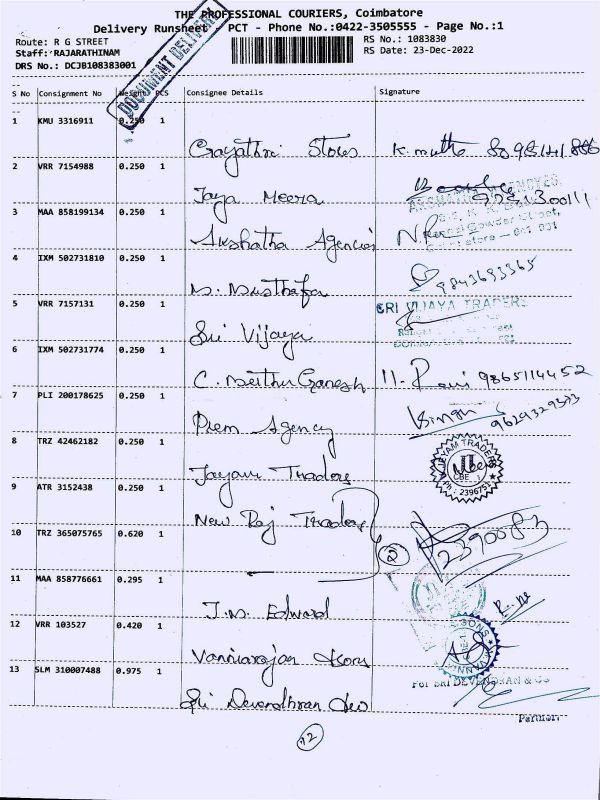 THE PROFESSIONAL COURIERS, Coimbatore
Delivery Runsheet PCT - Phone No.:0422-3505555 - Page No.:1
Route: R G STREET
Staff: RAJARATHINAM
DRS No.: DCJB108383001
RS No.: 1083830
RS Date: 23-Dec-2022
DOCUMENT DELIVERY
S No Consignment No Weight PCS Consignee Details Signature
1 KMU 3316911 0.250 1
Gayathri Stores K. muthu
2 VRR 7154988 0.250 1
Jaya Meera
3 MAA 858199134 0.250 1
Akshatha Agencies
4 IXM 502731810 0.250 1
M. Musthafa 9843693365
5 VRR 7157131 0.250 1
SRI VIJAYA TRADERS
Sri Vijaya
6 IXM 502731774 0.250 1
C. Muthu Ganesh 9865114452
7 PLI 200178625 0.250 1
Prem Agency
8 TRZ 42462182 0.250 1
VIJEYAM TRADERS
CBE - 1
Ph : 2396751
Jayam Traders
9 ATR 3152438 0.250 1
New Raj Traders
10 TRZ 365075765 0.620 1
2
2390083
11 MAA 858776661 0.295 1
J.M. Edward
12 VRR 103527 0.420 1
Vanniarajan & Sons
13 SLM 310007488 0.975 1
For SRI DEVENDHRAN & CO
Sri Devendhran & Co
Partner.
12